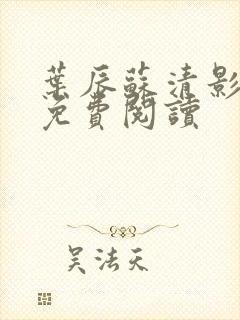 葉辰蘇清影
免費閱讀
吴法天